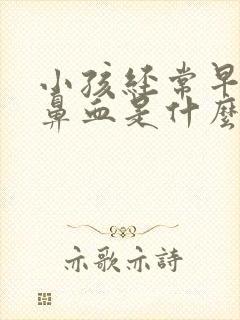 小孩经常早
鼻血是什麼
亦歌亦詩